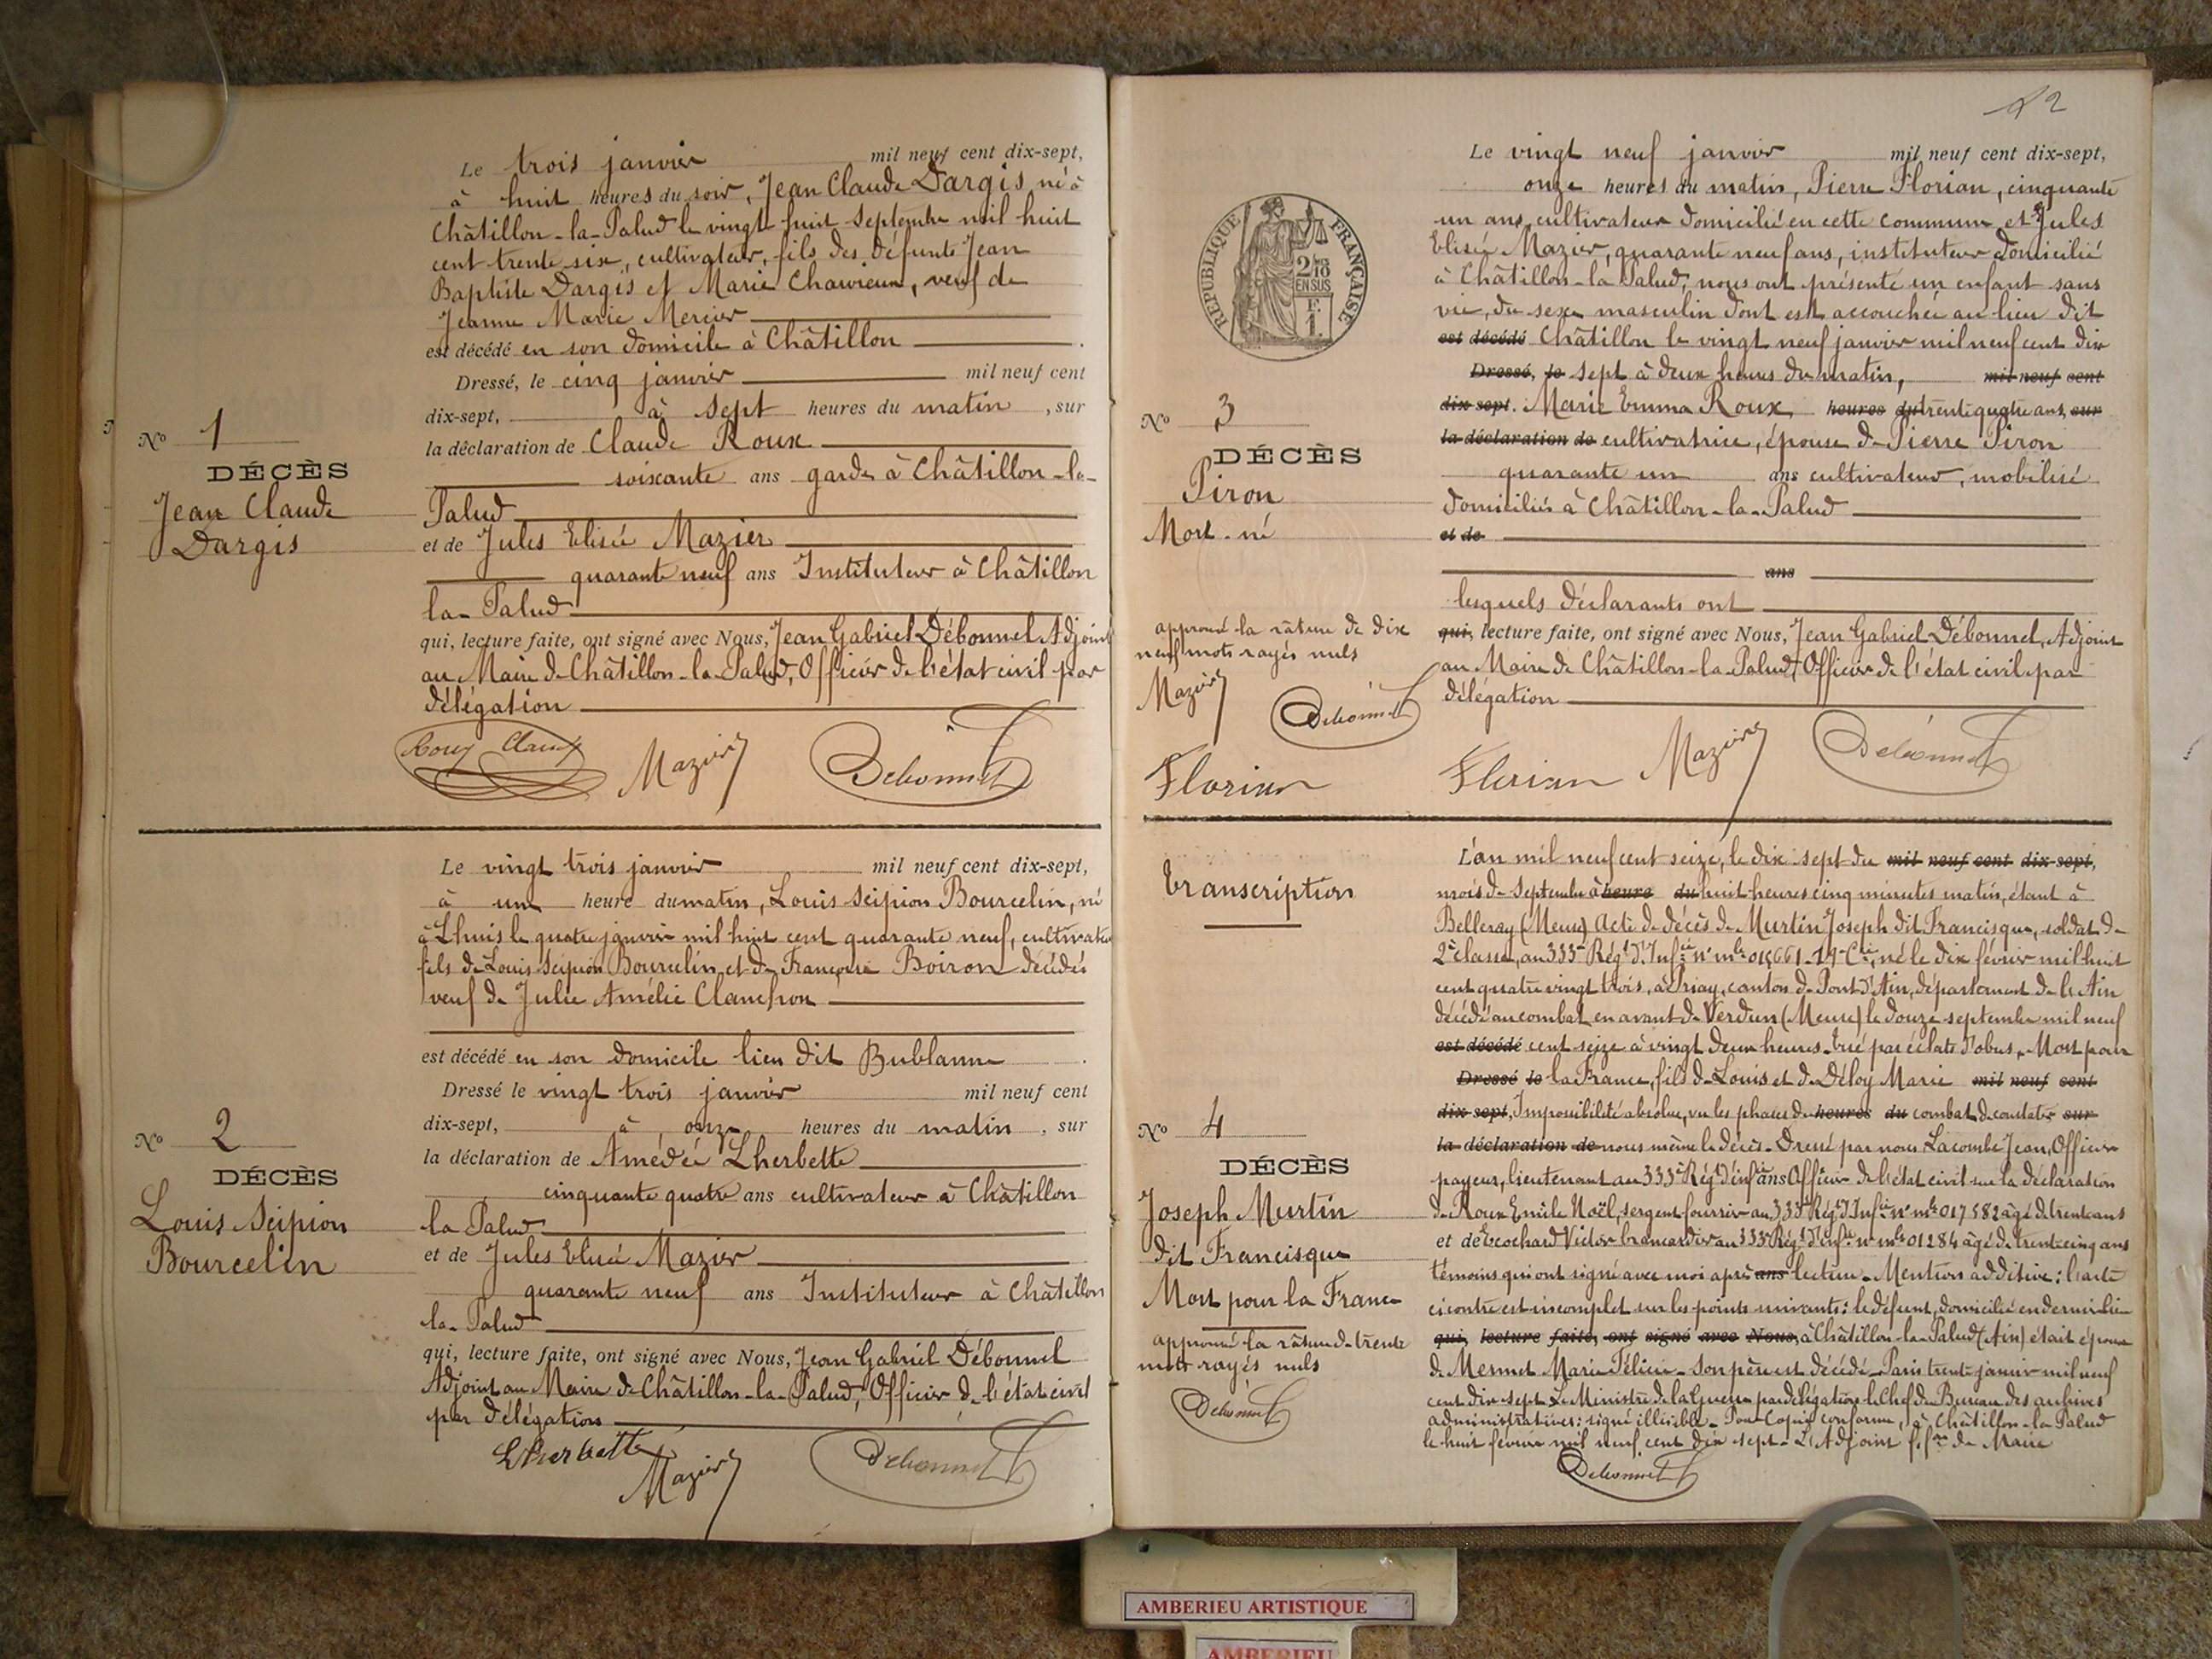 Le trois janvier mil neuf cent dix-sept,
à huit heures du soir, Jean Claude Dargis né à
Châtillon-la-Palud le vingt huit septembre mil huit
cent trente six, cultivateur, fils des défunts Jean
Baptiste Dargis et Marie Chavrieux, veuf de
Jeanne Marie Mercier
est décédé en son domicile à Châtillon
Dressé, le cinq janvier mil neuf cent
dix-sept, à sept heures du matin, sur
la déclaration de Claude Roux
soixante ans garde à Châtillon-la-
Palud
et de Jules Elisée Mazier
quarante neuf ans Instituteur à Châtillon
la-Palud
qui, lecture faite, ont signé avec Nous, Jean Gabriel Débonnel Adjoint
au Maire de Châtillon-la-Palud, Officier de l'état civil par
délégation
Roux Claude Mazier Debonnel
No 1
DÉCÈS
Jean Claude
Dargis
Le vingt trois janvier mil neuf cent dix-sept,
à une heure du matin, Louis Scipion Bourcelin, né
à Lhuis le quatre janvier mil huit cent quarante neuf, cultivateur
fils de Louis Scipion Bourcelin et de Françoise Boiron décédés
veuf de Julie Amélie Clanchon
est décédé en son domicile lieu dit Bublanne
Dressé le vingt trois janvier mil neuf cent
dix-sept, à onze heures du matin, sur
la déclaration de Amédée Lherbette
cinquante quatre ans cultivateur à Châtillon
la Palud
et de Jules Elisée Mazier
quarante neuf ans Instituteur à Châtillon
la-Palud
qui, lecture faite, ont signé avec Nous, Jean Gabriel Débonnel
Adjoint au Maire de Châtillon-la-Palud, Officier de l'état civil
par délégation
Lherbette Mazier Debonnel
No 2
DÉCÈS
Louis Scipion
Bourcelin
2
Le vingt neuf janvier mil neuf cent dix-sept,
onze heures du matin, Pierre Florian, cinquante
un ans, cultivateur domicilié en cette commune et Jules
Elisée Mazier, quarante neuf ans, instituteur domicilié
à Châtillon-la Palud, nous ont présenté un enfant sans
vie, du sexe masculin dont est accouchée au lieu dit
est décédé Châtillon le vingt neuf janvier mil neuf cent dix
Dressé, le sept à deux heures du matin, mil neuf cent
dix-sept. Marie Emma Roux heures du trente quatre ans, sur
la déclaration de cultivatrice, épouse de Pierre Piron
quarante un ans cultivateur, mobilisé
domiciliés à Châtillon-la-Palud
et de
ans
lesquels déclarants ont
qui, lecture faite, ont signé avec Nous, Jean Gabriel Débonnel, Adjoint
au Maire de Châtillon-la-Palud, Officier de l'état civil par
délégation
Florian Mazier Debonnel
RÉPUBLIQUE FRANÇAISE
2/10
EN SUS
F.
1.
No 3
DÉCÈS
Piron
Mort-né
approuvé la rature de dix
neuf mots rayés nuls
Mazier Debonnel
Florian
L'an mil neuf cent seize, le dix sept du mil neuf cent dix-sept,
mois de Septembre à heure du huit heures cinq minutes matin, étant à
Belleray (Meuse) Acte de décès de Murtin Joseph dit Francisque, soldat de
2e classe, au 333e Régt d'Infie no mle 015661-19e Cie, né le dix février mil huit
cent quatre vingt trois, à Priay, canton de Pont d'Ain, département de l'Ain
décédé au combat en avant de Verdun (Meuse) le douze septembre mil neuf
est décédé cent seize à vingt deux heures. Tué par éclats d'obus. Mort pour
Dressé le la France, fils de Louis et de Déloy Marie mil neuf cent
dix-sept, Impossibilité absolue, vu les phases du heures du combat de constater sur
la déclaration de nous même le décès. Dressé par nous Lacombe Jean, Officier
payeur, lieutenant au 333e Régt d'infie ans Officier de l'état civil sur la déclaration
de Roux Emile Noël, sergent fourrier au 333e Régt d'Infie no mle 017582 âgé de trente ans
et de Ecochard Victor brancardier au 333e Régt d'Infie no mle 01284 âgé de trente cinq ans
témoins qui ont signé avec moi après ans lecture. Mention additive: l'acte
ci contre est incomplet sur les points suivants: le défunt, domicilié en dernier lieu
qui, lecture faite, ont signé avec Nous, à Châtillon-la-Palud (Ain) était époux
de Mermet Marie Félicie. Son père est décédé. Paris trente janvier mil neuf
cent dix-sept. Le Ministre de la Guerre par délégation le Chef du Bureau des archives
administratives: signé illisible. Pour Copie conforme, à Châtillon-la-Palud
le huit février mil neuf cent dix sept. L'Adjoint f.f.on de Maire
Debonnel
transcription
No 4
DÉCÈS
Joseph Murtin
dit Francisque
Mort pour la France
approuvé la rature de trente
mots rayés nuls
Debonnel
AMBERIEU ARTISTIQUE
AMBERIEU